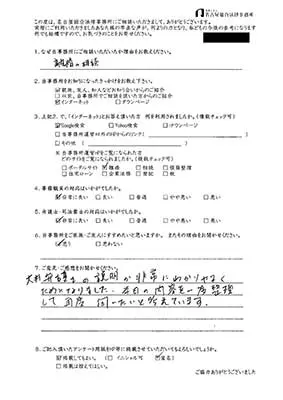 名古屋総合法律事務所
この度は、名古屋総合法律事務所にご相談いただきまして、ありがとうございます。
1. なぜ当事務所にご相談いただいたか理由をお教えください。
離婚の相続
2. 当事務所をお知りになったきっかけをお教え下さい。
□親族、友人、知人などお知り合いからのご紹介
□以前、当事務所でご相談を頂いた方からのご紹介
☑インターネット □タウンページ
3. 上記2. で、(インターネット)とお答え頂いた方 何を利用されましたか。(複数チェック可)
☑Google検索 □Yahoo検索 □タウンページ
□当事務所運営HP以外のHPからのリンク(
□その他(
※当事務所運営HPをご覧になられた方
どのサイトをご覧になられましたか。(複数チェック可)
□ポータルサイト ☑離婚 □相続 □債務整理
□住宅ローン □企業法務 □登記 □税
4. 事務職員の対応はいかがでしたか。
☑非常に良い □良い □普通 □やや悪い □悪い
5. 弁護士・司法書士の対応はいかがでしたか。
☑非常に良い □良い □普通 □やや悪い □悪い
6. 当事務所をご家族・ご友人にすすめたいと思いますか。またその理由をお聞かせください。
☑思う □思わない
7. ご意見・ご感想をお聞かせください。
弁護士の説明が非常にわかりやすく
ためになりました。本日の内容を一度整理
して再度伺いたいと考えています。
8. ご記入頂いたアンケート用紙をHP等に掲載させていただいてもよろしいでしょうか。
☑掲載してもよい。(□イニシャル可 ☑匿名)
□掲載は控えてほしい。
ご協力ありがとうございました